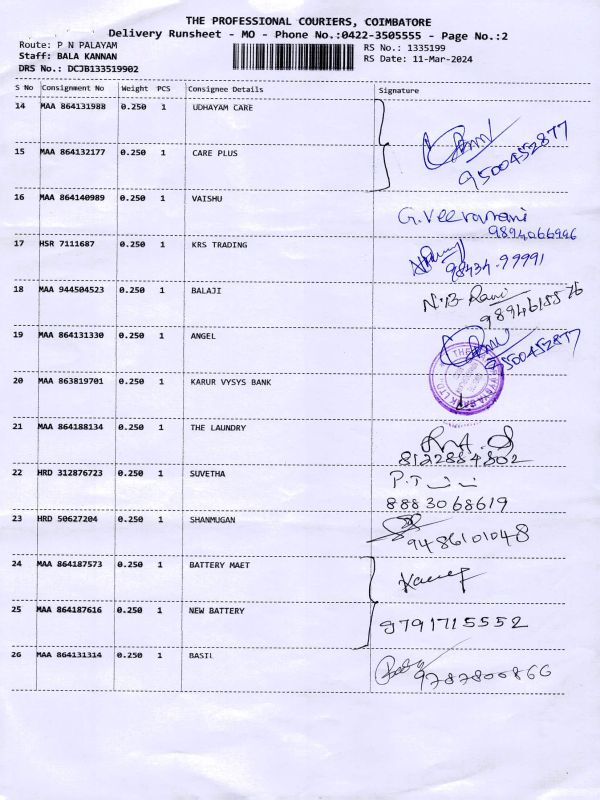 THE PROFESSIONAL COURIERS, COIMBATORE
Delivery Runsheet - MO - Phone No.:0422-3505555 - Page No.:2
Route: P N PALAYAM
RS No.: 1335199
Staff: BALA KANNAN
RS Date: 11-Mar-2024
DRS No.: DCJB133519902
S No Consignment No Weight PCS Consignee Details Signature
14 MAA 864131988 0.250 1 UDHAYAM CARE
15 MAA 864132177 0.250 1 CARE PLUS
9500452877
16 MAA 864140989 0.250 1 VAISHU
G.Veeramani
9894066946
17 HSR 7111687 0.250 1 KRS TRADING
98434-99991
18 MAA 944504523 0.250 1 BALAJI
9894615576
19 MAA 864131330 0.250 1 ANGEL
9500452877
20 MAA 863819701 0.250 1 KARUR VYSYS BANK
21 MAA 864188134 0.250 1 THE LAUNDRY
8122884802
22 HRD 312876723 0.250 1 SUVETHA
P.T
8883068619
23 HRD 50627204 0.250 1 SHANMUGAN
9486101048
24 MAA 864187573 0.250 1 BATTERY MAET
25 MAA 864187616 0.250 1 NEW BATTERY
9791715552
26 MAA 864131314 0.250 1 BASIL
9787800866